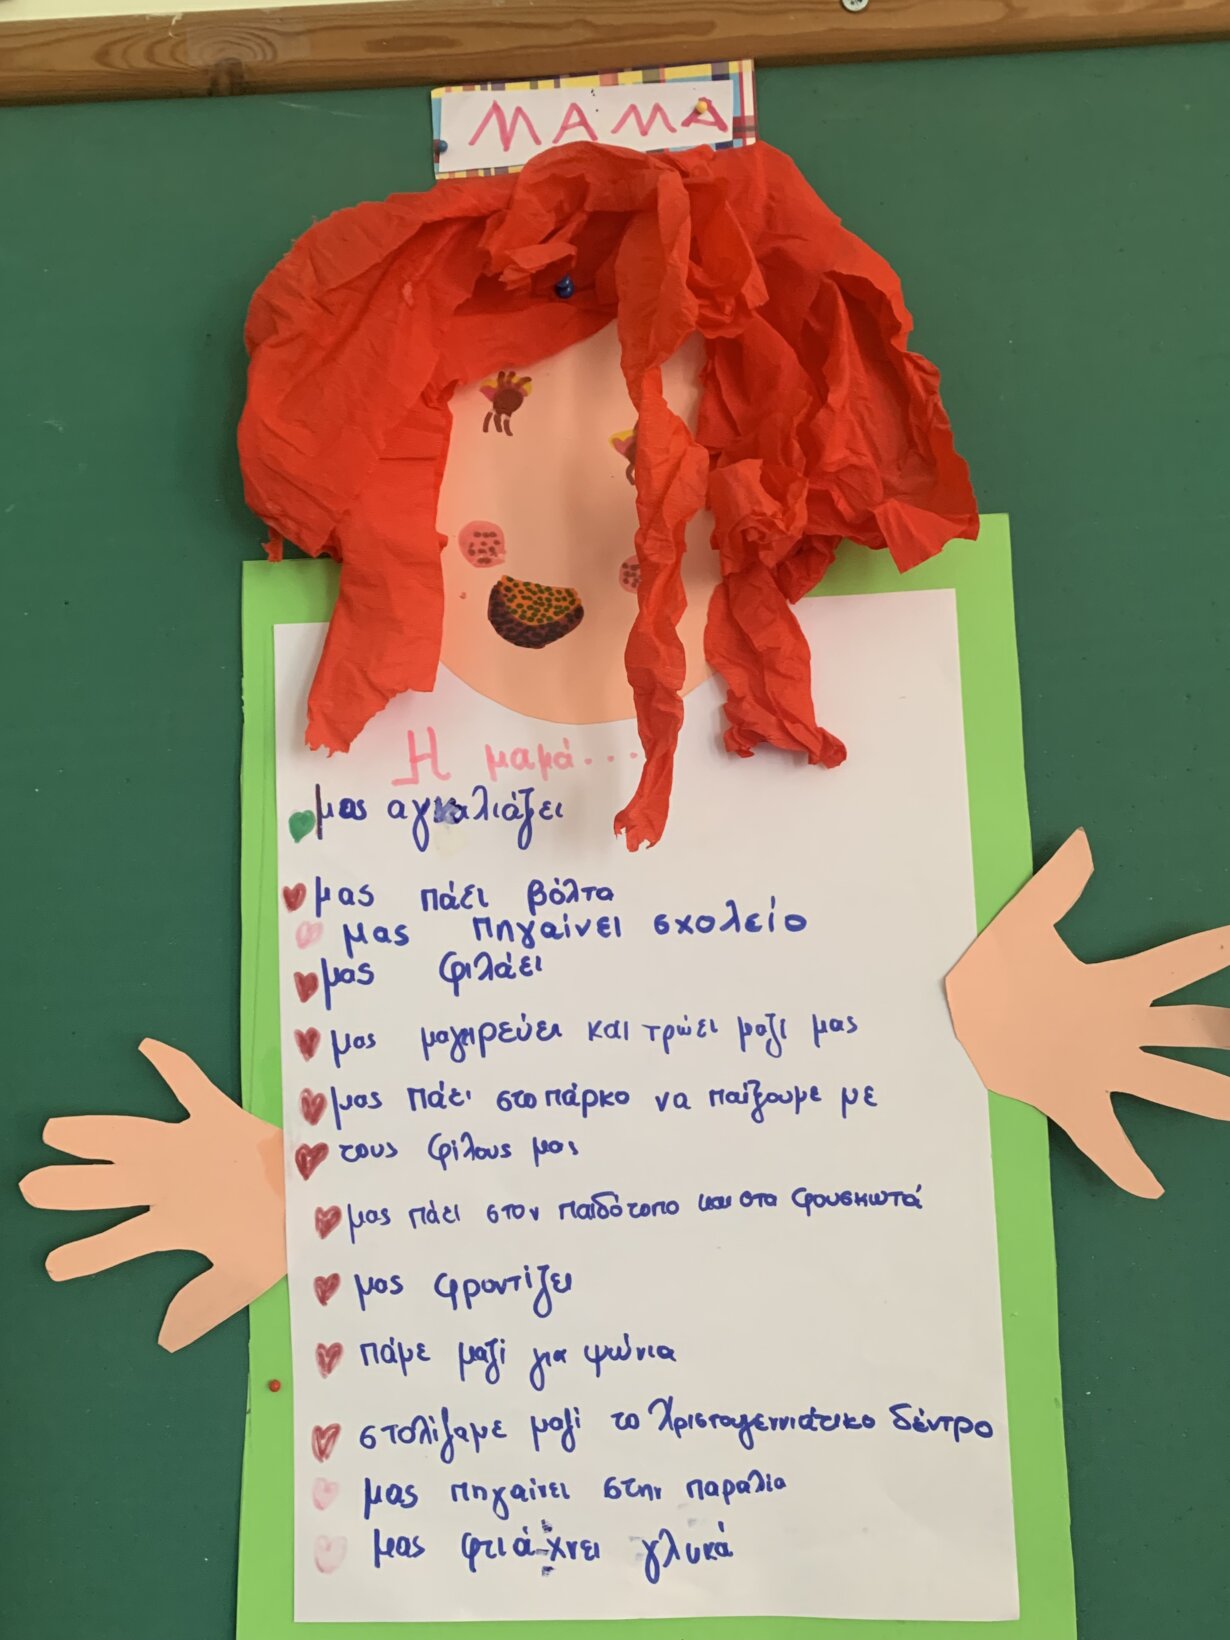 ΜΑΜΑ
Η μαμά...
μας αγκαλιάζει
μας πάει βόλτα
μας πηγαίνει σχολείο
μας φιλάει
μας μαγειρεύει και τρώει μαζί μας
μας πάει στο πάρκο να παίξουμε με
τους φίλους μας
μας πάει στον παιδότοπο και στα φουσκωτά
μας φροντίζει
πάμε μαζί για ψώνια
στολίζαμε μαζί το Χριστουγεννιάτικο δέντρο
μας πηγαίνει στην παραλία
μας φτιάχνει γλυκά